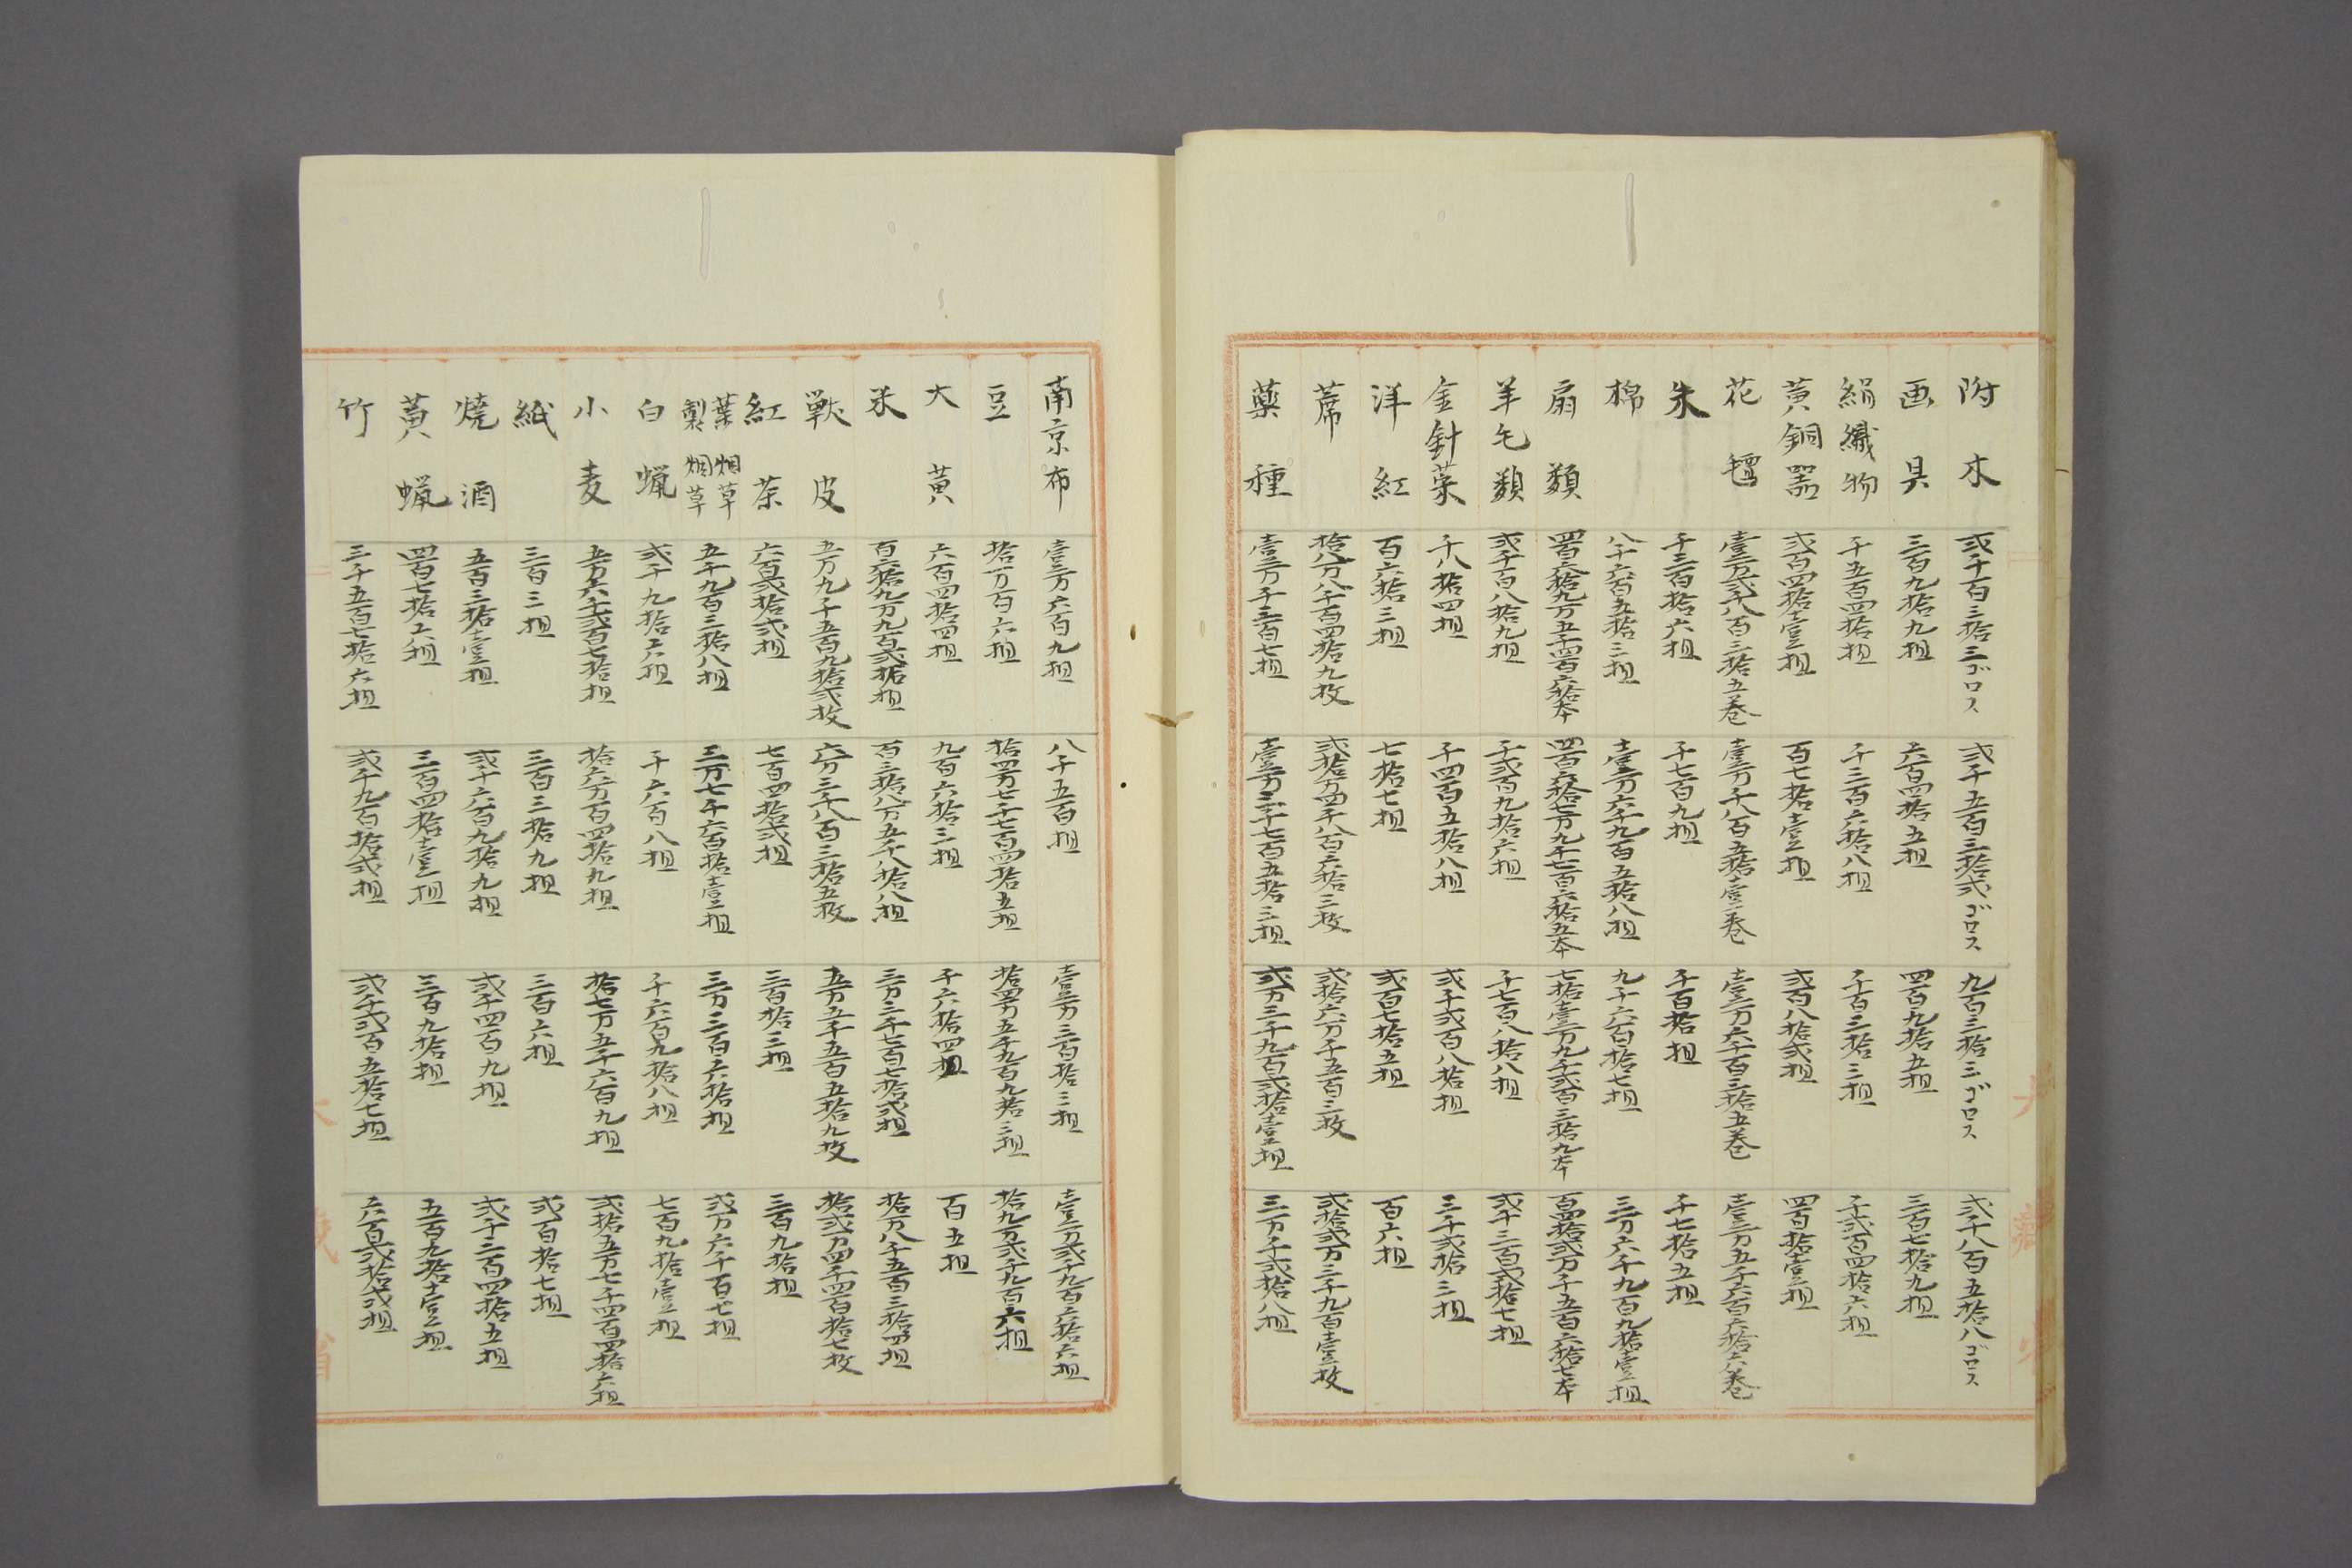 附木 弐千百三拾三ゴロス 弐千五百三拾弐ゴロス 九百三拾三ゴロス 弐千八百五拾八ゴロス
画具 三百九拾九担 六百四拾五担 四百九拾五担 三百七拾九担
絹織物 千五百四拾担 千三百六拾八担 千百三拾三担 千弐百四拾六担
黄銅器 弐百四拾壹担 百七拾壹担 弐百八拾弐担 四百拾壹担
花毯 壹万弐千八百三拾五巻 壹万千八百五拾壹巻 壹万六千百三拾五巻 壹万五千六百六拾六巻
朱 千三百拾六担 千七百九担 千百拾担 千七拾五担
棉 八千六百五拾三担 壹万六千九百五拾八担 九千六百拾七担 三万六千九百九拾壹担
扇類 四百六拾九万五千四百六拾本 四百六拾七万九千七百六拾五本 七拾壹万九千弐百三拾九本 百四拾弐万千五百六拾七本
羊毛類 弐千百八拾九担 千弐百九拾六担 千七百八拾八担 弐千三百弐拾七担
金針菜 千八拾四担 千四百五拾八担 弐千弐百八拾担 三千弐拾三担
洋紅 百六拾三担 七拾七担 弐百七拾五担 百六担
蓆 拾八万八千百四拾九枚 弐拾万四千八百六拾三枚 弐拾六万千五百三枚 弐拾弐万三千九百壹枚
薬種 壹万千三百七担 壹万三千七百五拾三担 弐万三千九百弐拾壹担 三万千弐拾八担
南京布 壹万六百九担 八千五百担 壹万三百拾三担 壹万弐千九百六拾六担
豆 拾万百六担 拾四万七千七百四拾五担 拾四万五千九百九拾三担 拾九万弐千九百六担
大黄 六百四拾四担 九百六拾三担 千六拾四担 百五担
米 百六拾九万九百弐拾担 百三拾八万五千八拾八担 三万三千七百七拾弐担 拾万八千五百三拾四担
獣皮 五万九千五百九拾弐枚 六万三千八百三拾五枚 五万五千五百五拾九枚 拾弐万四千四百拾七枚
紅茶 六百弐拾弐担 七百四拾弐担 三百拾三担 三百九拾担
葉烟草 製烟草 五千九百三拾八担 三万七千六百拾壹担 三万三百六拾担 弐万六千百七担
白蝋 弐千九拾六担 千六百八担 千六百九拾八担 七百九拾壹担
小麦 五万六千弐百七拾担 拾六万百四拾九担 拾七万五千六百九担 弐拾五万七千四百四拾六担
紙 三百三担 三百三拾九担 三百六担 弐百拾七担
焼酒 五百三拾壹担 弐千六百九拾九担 弐千四百九担 弐千三百四拾五担
黄蝋 四百七拾六担 三百四拾壹担 三百九拾担 五百九拾壹担
竹 三千五百七拾六担 弐千九百拾弐担 弐千弐百五拾七担 六百弐拾弐担